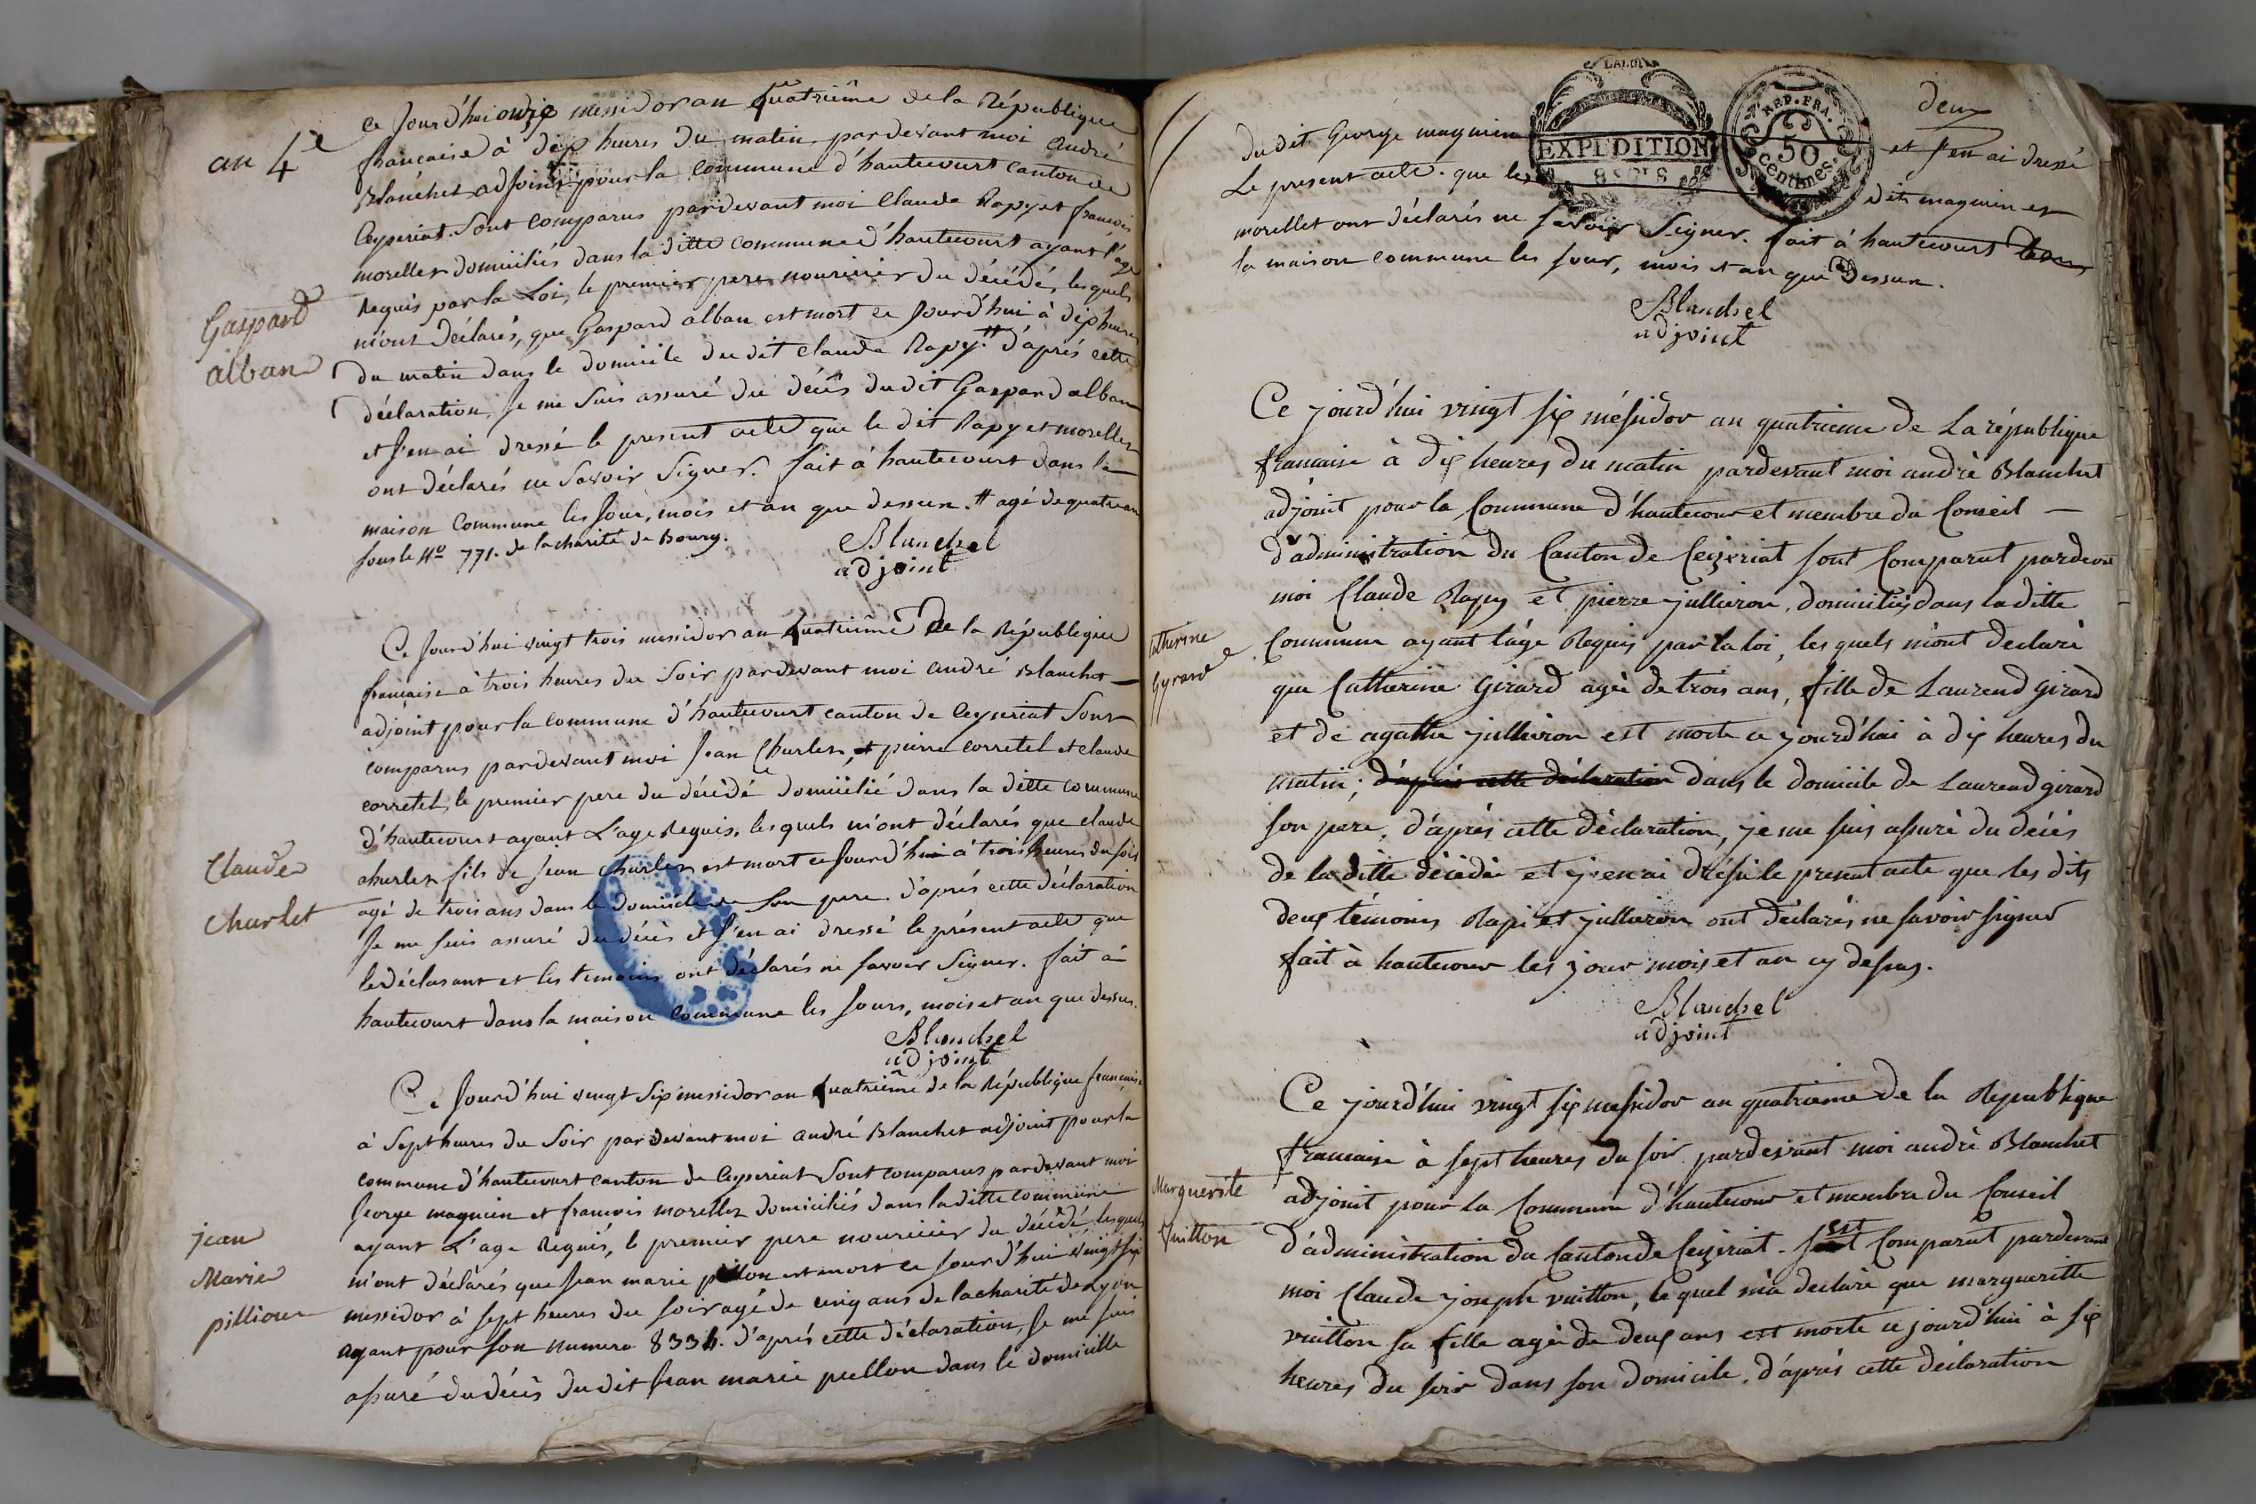 an 4e
ce Jourd'hui onze messidor an quatrième de la République
française à dix heures du matin pardevant moi André
Blanchet adjoint pour la commune d'hautecourt canton de
Ceyseriat. Sont comparus pardevant moi Claude Rapy et francois
morellet domiciliés dans la ditte commune d'hautecourt ayant l'age
Requis par la Loi, le premier pere nouricier du décédé, lesquels
m'ont déclarés, que Gaspard alban est mort ce Jourd'hui à dix heures
du matin dans le domicile du dit Claude Rapy. # d'après cette
déclaration, Je me suis assuré du décès du dit Gaspard alban
et J'en ai dressé le present acte que le dit Rapy et morellet
ont déclarés ne Savoir Signer. fait à hautecourt dans la
maison Commune les Jour, mois et an que dessus. # agé de quatre ans
sous le No 771. de la charité de Bourg.
Blanchet
adjoint
Gaspard
alban
Ce Jourd'hui vingt trois messidor an quatrième De la République
française à trois heures du Soir pardevant moi André Blanchet
adjoint pour la commune d'hautecourt canton de Ceyseriat Sont
comparus pardevant moi Jean Charlet, et pierre corretel et claude
corretel, le premier pere du décédé domicilié dans la ditte commune
d'hautecourt ayant L'age Requis, lesquels m'ont déclarés que claude
charlet fils de Jean Charlet est mort ce Jourd'hui à trois heures du soir
agé de trois ans dans le domicile de Son pere. d'après cette déclaration
Je me suis assuré du décès et J'en ai dressé le présent acte que
le déclarant et les temoins ont déclarés ne Savoir Signer. fait à
hautecourt dans la maison commune les Jours, mois et an que dessus.
Blanchet
adjoint
Claude
Charlet
Ce Jourd'hui vingt Six messidor an quatrième de la République française
à Sept heures du Soir pardevant moi André Blanchet adjoint pour la
commune d'hautecourt canton de Ceyseriat Sont comparus pardevant moi
George magnien et francois morellet domiciliés dans la ditte commune
ayant L'age Requis, le premier pere nouricier du décédé, lesquels
m'ont déclarés que Jean marie pillon est mort ce Jourd'hui vingt six
messidor à sept heures du soir agé de cinq ans de la charité de Lyon
ayant pour son numero 8334. d'après cette déclaration, Je me suis
assuré du décès du dit Jean marie pillon dans le domicille
jean
Marie
pillion
deux
du dit George magnien et J'en ai dressé
Le present acte. que les dits magnien et
morellet ont déclarés ne Savoir Signer. fait à hautecourt dans
la maison commune les Jour, mois et an que dessus.
EXPÉDITION
REP. FRA.
50
centimes.
Blanchet
adjoint
Ce jourd'hui vingt six méssidor an quatrieme de La république
francaise à dix heures du matin pardevant moi andré Blanchet
adjoint pour la Commune d'hautecour et membre du Conseil
d'administration du Canton de Ceyzeriat sont Comparut pardevant
moi Claude Rapy et pierre jullieron, domiciliés dans la ditte
Commune ayant l'age Requis par la loi, lesquels m'ont declaré
que Catherine Girard agée de trois ans, fille de Laurend girard
et de agathe jullieron est morte ce jourd'hui à dix heures du
matin; d'après cette déclaration dans le domicile de Laurend girard
son pere. d'après cette déclaration, je me suis assuré du décès
de la ditte décédée et j'en ai dréssé le present acte que les dits
deux témoins Rapi et jullieron ont déclarés ne savoir signer
fait à hautecour les jour mois et an cy dessus.
Blanchet
adjoint
Catherine
Gyrard
Ce jourd'hui vingt six messidor an quatrieme de la République
francaise à sept heures du soir pardevant moi andré Blanchet
adjoint pour la Commune d'hautecour et membre du Conseil
d'administration du Canton de Ceyzeriat. est Comparut pardevant
moi Claude joseph vuitton, lequel m'a declaré que margueritte
vuitton sa fille agée de deux ans est morte ce jourd'hui à six
heures du soir dans son domicile. d'après cette déclaration
Marguerite
Vuitton